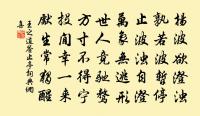 揚波欲澄濁
孰若波暫停
止波濁自澄
萬象無逃形
世人竟馳騖
方寸不得寧
投閒幸一來
獻生常獨醒
王之道答止亭詞典網
喜